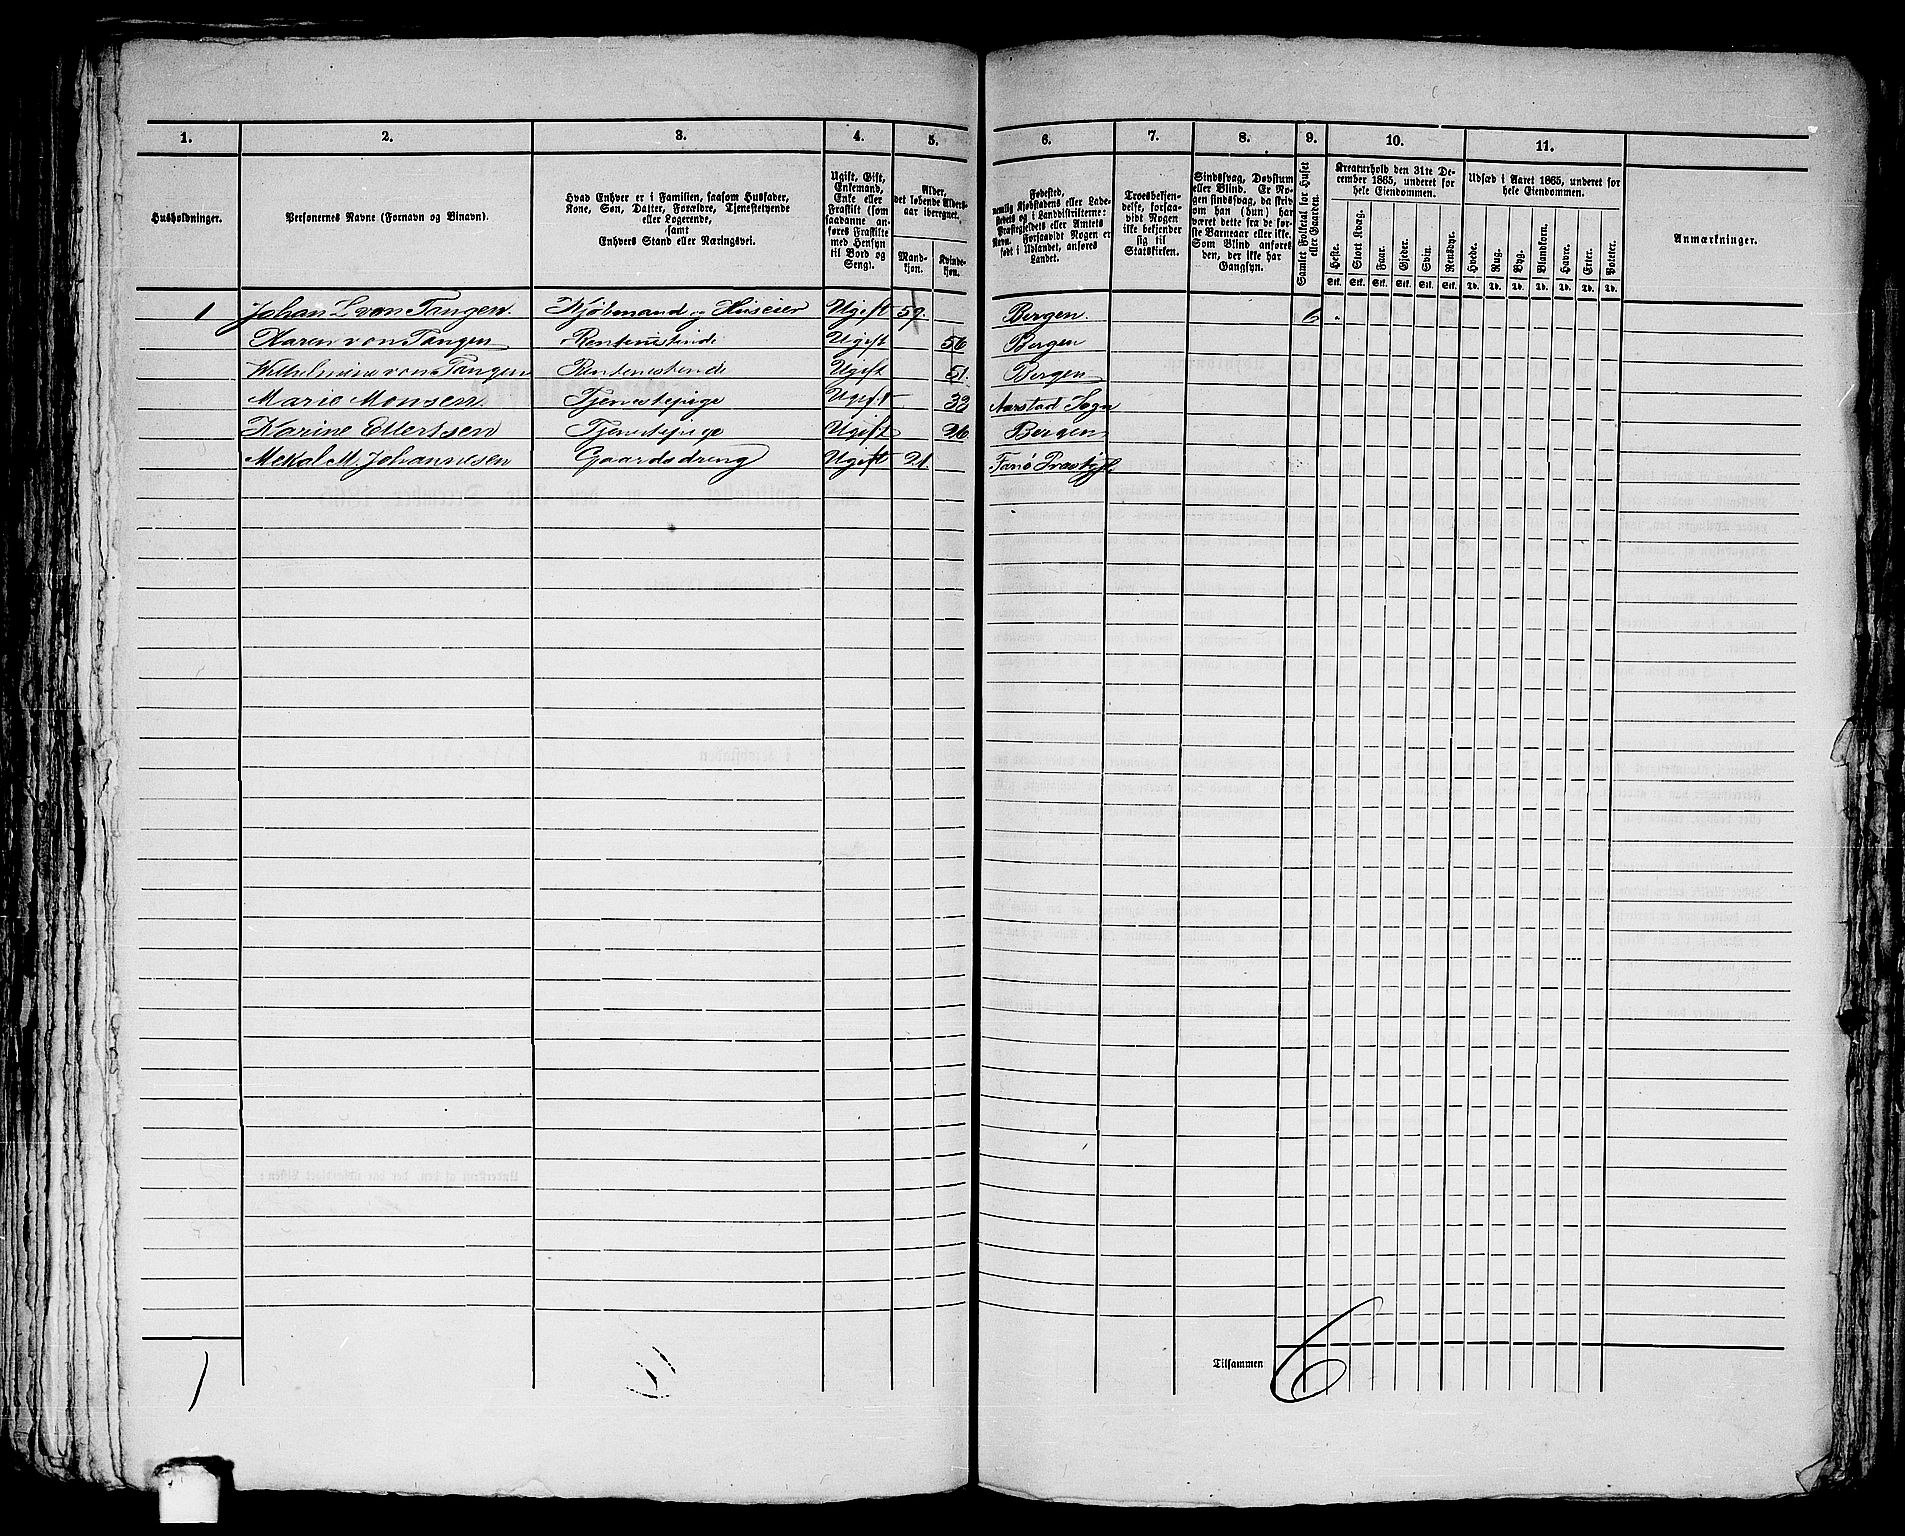 1. 2. 3. 4. 5. 6. 7. 8. 9. 10. 11.
Husholdninger.
Personernes Navne (Fornavn og Binavn).
Hvad Enhver er i Familien, saasom Husfader,
Kone, Søn, Datter, Forældre, Tjenestetyende
eller Logerende,
samt
Enhvers Stand eller Næringsvei.
Ugift, Gift,
Enkemand,
Enke eller
Fraskilt (som
saadanne an-
føres Fraskilte
med Hensyn
til Bord og
Seng).
Alder,
det løbende Alders-
aar iberegnet.
Mand-
kjøn.
Kvinde-
kjøn.
Fødested,
nemlig Kjøbstadens eller Lade-
stedets og i Landdistrikterne:
Præstegjeldets eller Amtets
Navn. Forsaavidt Nogen er
født i Udlandet, anføres
Landet.
Troesbekjen-
delse, forsaa-
vidt Nogen
ikke bekjender
sig til
Statskirken.
Sindssvag, Døvstum
eller Blind. Er No-
gen sindssvag, da skriv
om han (hun) har
været dette fra de før-
ste Barneaar eller ikke.
Som Blind anføres
den, der ikke har
Gangsyn.
Samlet Folketal for Huset
eller Gaarden.
Kreaturhold den 31te De-
cember 1865, underet for
hele Eiendommen.
Heste. Stort Kvæg. Faar. Gjeder. Svin. Rensdyr.
Stk. Stk. Stk. Stk. Stk. Stk.
Udsæd i Aaret 1865, underet for
hele Eiendommen.
Hvede. Rug. Byg. Blandkorn. Havre. Erter. Poteter.
Td. Td. Td. Td. Td. Td. Td.
Anmærkninger.
1 Johan L von Tangen. Kjøbmand og Huseier Ugift 59. Bergen. 6
Karen von Tangen Rentenistinde Ugift 56 Bergen
Wilhelmine von Tangen Ugift 51. Bergen
Marie Monsen. Tjenestepige Ugift Aarstad Sogn
Karine Ellertsen Tjenestepige Ugift 26 Bergen
Mekal M. Johannesen Gaardsdreng Ugift 21.
Tilsammen 6
1